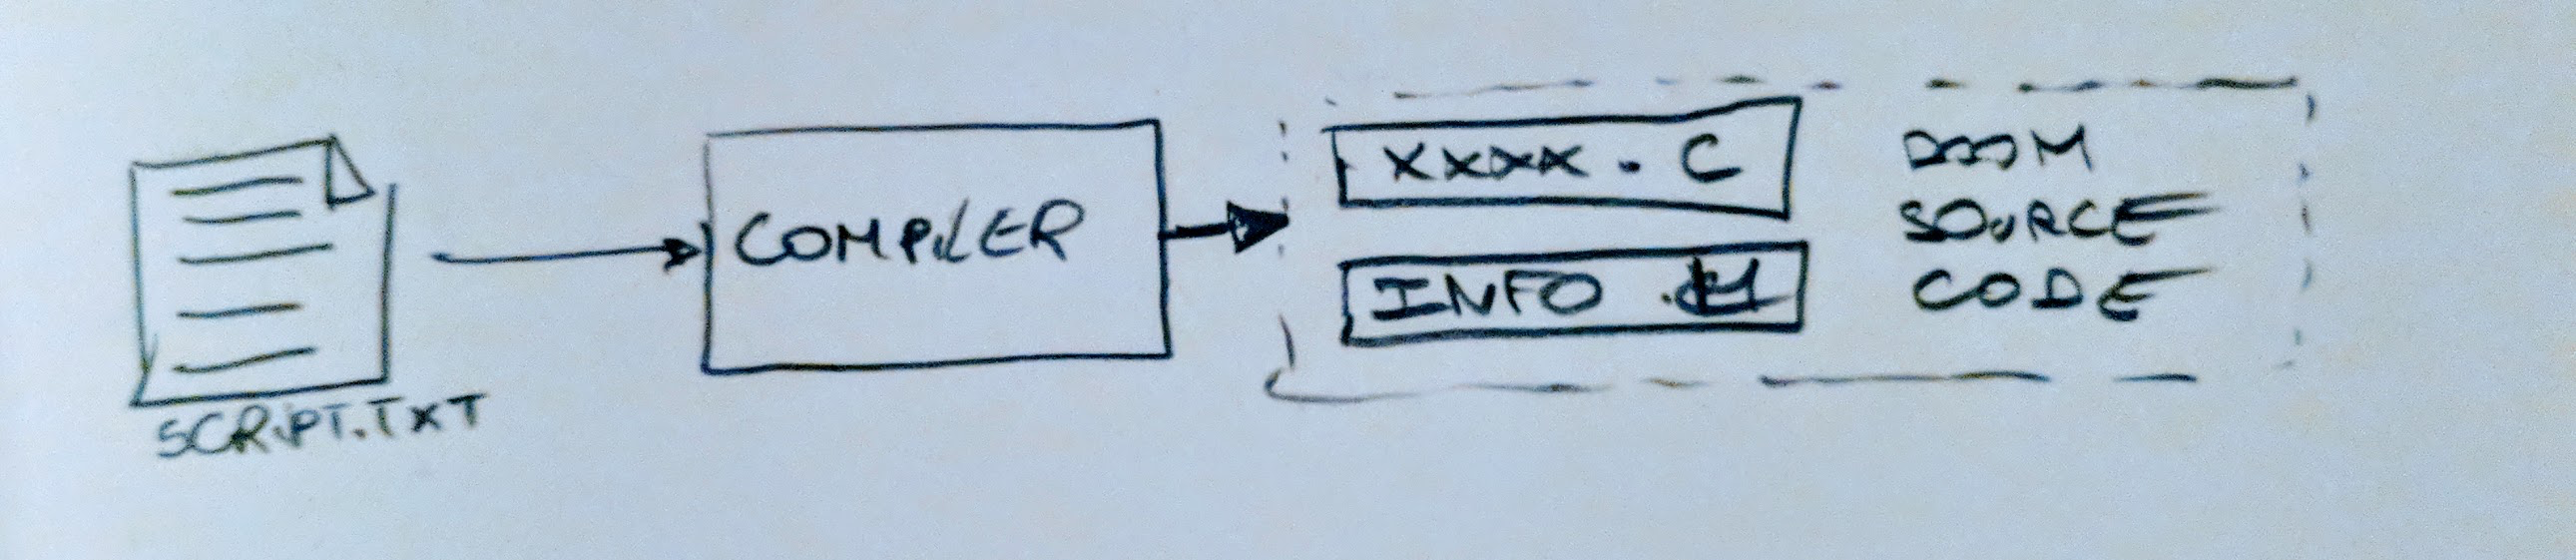 SCRIPT.TXT
COMPILER
XXXX.C
INFO.H
DOOM
SOURCE
CODE